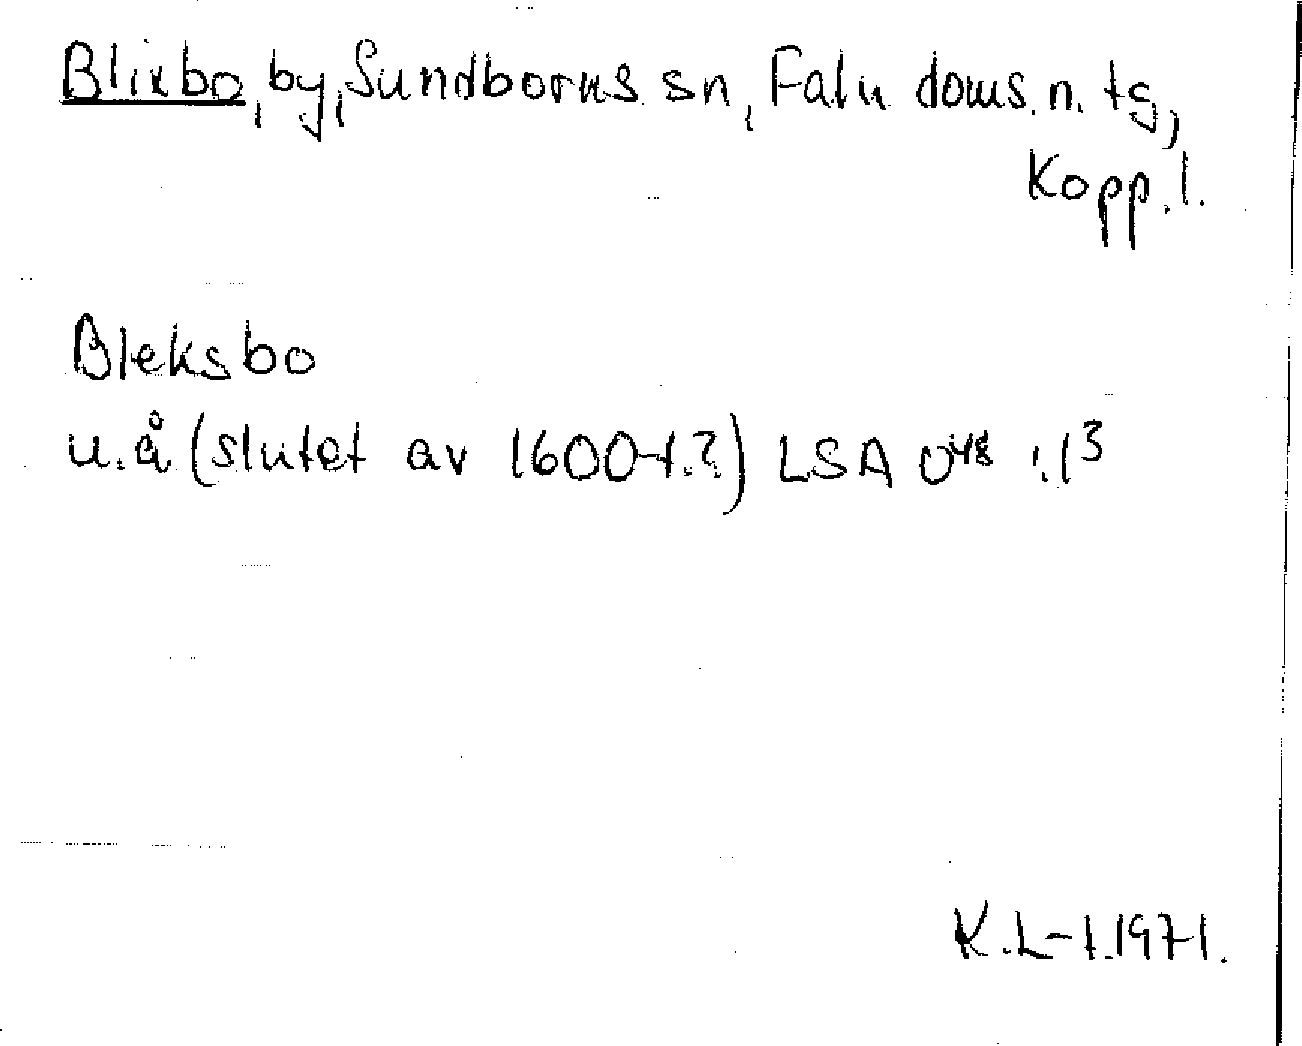 Blixbo, by, Sundborns sn, Falu doms. n. tg,
Kopp. l.
Bleksbo
u.å (slutet av 1600-t.?) LSA U48 1:13
K.L-t.1971.